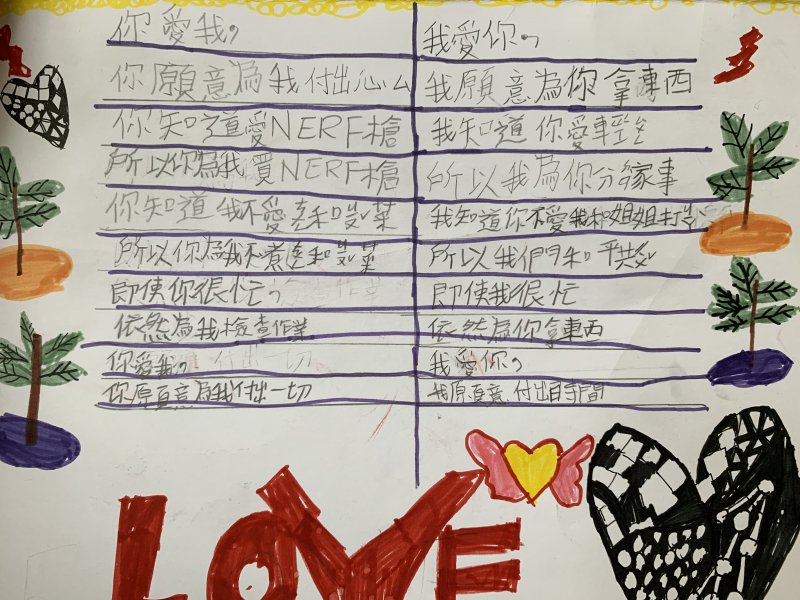 你愛我，
你願意為我付出心ム
你知道愛NERF槍
所以你為我買NERF槍
你知道我不愛
所以你為我不煮
即使你很忙，
依然為我檢查作業
你愛我，
你原頁意為我付出一切
我愛你，
我願意為你拿東西
我知道你愛輕
所以我為你分家事
我知道你不愛我和姐姐打
所以我們和平共
即使我很忙
依然為你拿東西
我愛你，
我原頁意付出時間
LOVE